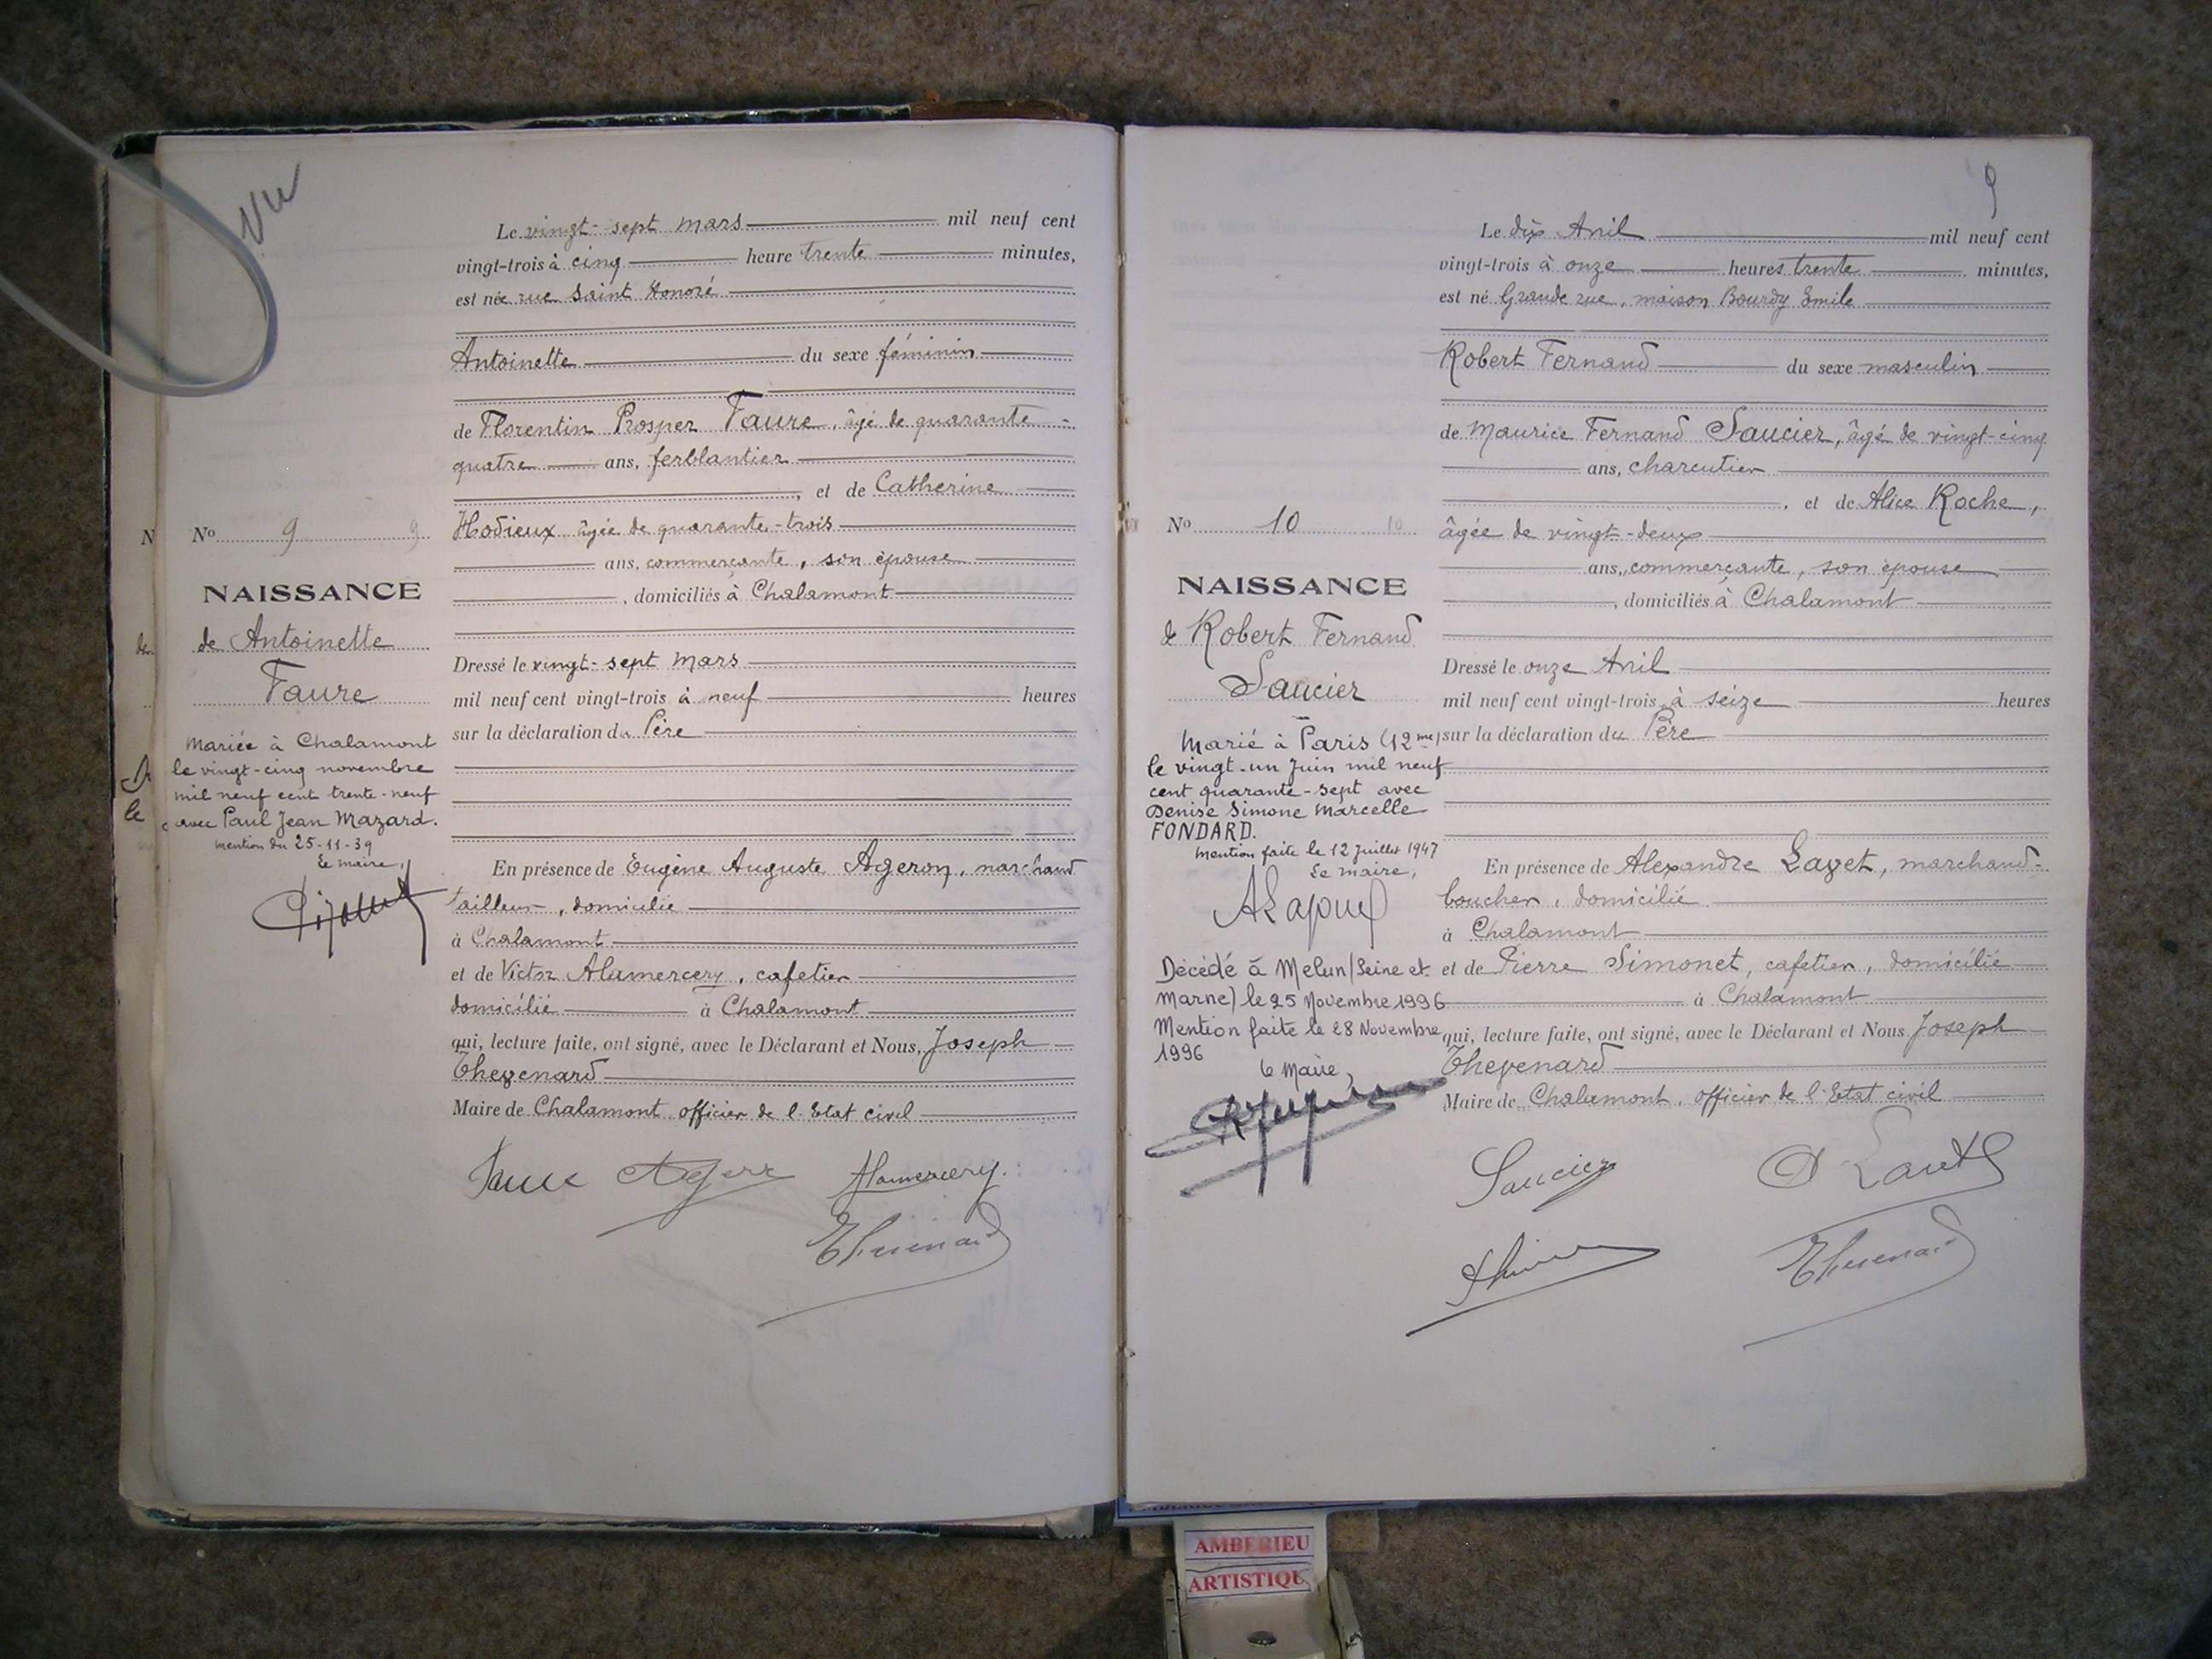 Vu
Le vingt-sept mars mil neuf cent
vingt-trois à cinq heure trente minutes,
est née rue Saint Honoré
Antoinette du sexe féminin
de Florentin Prosper Faure, âgé de quarante-
quatre ans, ferblantier
, et de Catherine
Hodieux âgée de quarante-trois
ans, commerçante, son épouse
, domiciliés à Chalamont
Dressé le vingt-sept mars
mil neuf cent vingt-trois à neuf heures
sur la déclaration du Père
En présence de Eugène Auguste Ageron, marchand
tailleur, domicilié
à Chalamont
et de Victor Alamercery, cafetier
domicilié à Chalamont
qui, lecture faite, ont signé, avec le Déclarant et Nous, Joseph
Thevenard
Maire de Chalamont officier de l'Etat civil
Faure Ageron Alamercery
Thevenard
N
de
le
No 9 9
NAISSANCE
de Antoinette
Faure
Mariée à Chalamont
le vingt-cinq novembre
mil neuf cent trente-neuf
avec Paul Jean Mazard.
Mention du 25-11-39
Le maire,
9
Le dix Avril mil neuf cent
vingt-trois à onze heures trente minutes,
est né Grande rue, maison Bourdy Emile
Robert Fernand du sexe masculin
de Maurice Fernand Saucier, âgé de vingt-cinq
ans, charcutier
, et de Alice Roche,
âgée de vingt-deux
ans, commerçante, son épouse
, domiciliés à Chalamont
Dressé le onze Avril
mil neuf cent vingt-trois à seize heures
sur la déclaration du Père
En présence de Alexandre Layet, marchand-
boucher, domicilié
à Chalamont
et de Pierre Simonet, cafetier, domicilié
à Chalamont
qui, lecture faite, ont signé, avec le Déclarant et Nous Joseph
Thevenard
Maire de Chalamont, officier de l'Etat civil
Saucier
Thevenard
No 10 10
NAISSANCE
de Robert Fernand
Saucier
Marié à Paris (12me)
le vingt-un Juin mil neuf
cent quarante-sept avec
Denise Simone Marcelle
FONDARD.
Mention faite le 12 Juillet 1947
Le maire,
Décédé à Melun (Seine et
Marne) le 25 Novembre 1996
Mention faite le 28 Novembre
1996
le Maire,
AMBERIEU
ARTISTIQUE